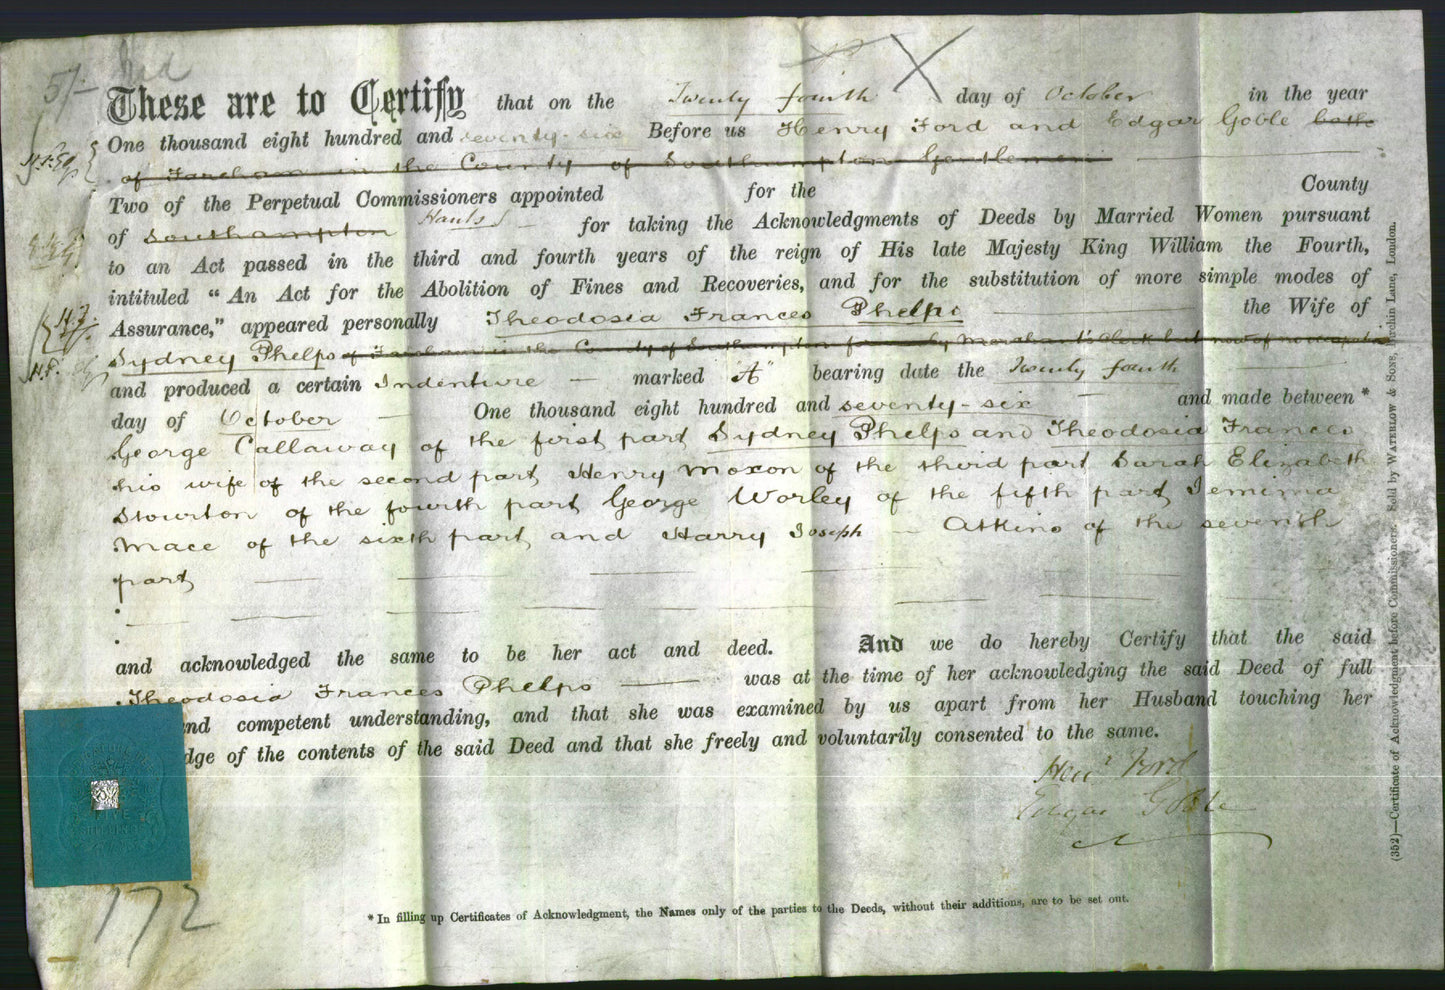 5/-
These are to Certify that on the Twenty fourth day of October in the year
One thousand eight hundred and seventy-six Before us Henry Ford and Edgar Goble both
of Fareham in the County of Southampton Gentlemen
Two of the Perpetual Commissioners appointed for the County
of Southampton Hants for taking the Acknowledgments of Deeds by Married Women pursuant
to an Act passed in the third and fourth years of the reign of His late Majesty King William the Fourth,
intituled "An Act for the Abolition of Fines and Recoveries, and for the substitution of more simple modes of
Assurance," appeared personally Theodosia Frances Phelps the Wife of
Sydney Phelps of Fareham in the County of Southampton formerly Merchant's Clerk but now of no occupation
and produced a certain Indenture marked "A" bearing date the Twenty fourth
day of October One thousand eight hundred and seventy-six and made between *
George Callaway of the first part Sydney Phelps and Theodosia Frances
his wife of the second part Henry Moxon of the third part Sarah Elizabeth
Stourton of the fourth part George Worley of the fifth part Jemima
Mace of the sixth part and Harry Joseph Atkins of the seventh
part
and acknowledged the same to be her act and deed. And we do hereby Certify that the said
Theodosia Frances Phelps was at the time of her acknowledging the said Deed of full
and competent understanding, and that she was examined by us apart from her Husband touching her
dge of the contents of the said Deed and that she freely and voluntarily consented to the same.
Heny Ford
Edgar Goble
FIVE
SHILLINGS
172
* In filling up Certificates of Acknowledgment, the Names only of the parties to the Deeds, without their additions, are to be set out.
(352)—Certificate of Acknowledgment before Commissioners. Sold by WATERLOW & SONS, Birchin Lane, London.